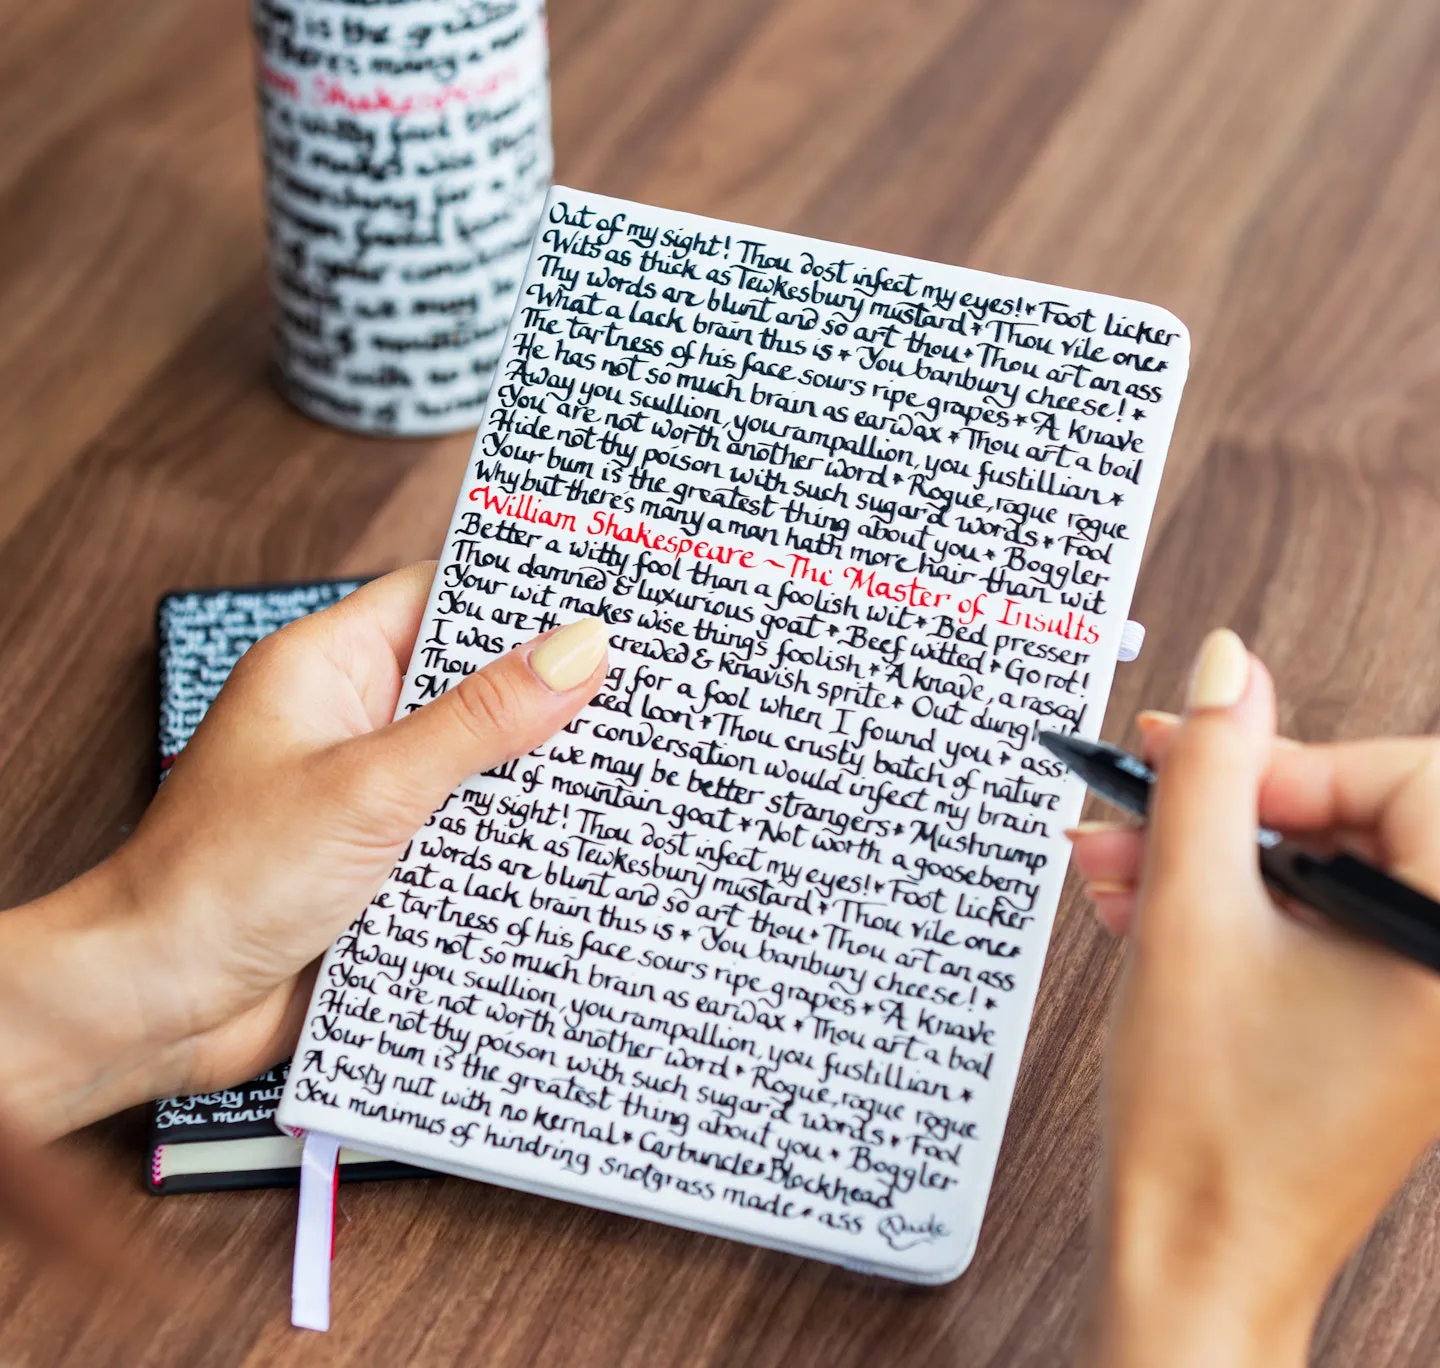 is the
there's many a
Shakespeare
a witty fool
makes wise
for a
your
we may be
Out of my sight! Thou dost infect my eyes!* Foot licker
Wits as thick as Tewkesbury mustard * Thou vile one*
Thy words are blunt and so art thou * Thou art an ass
What a lack brain this is * You banbury cheese! *
The tartness of his face sours ripe grapes * A knave
He has not so much brain as earwax * Thou art a boil
Away you scullion, you rampallion, you fustillian *
You are not worth another word * Rogue, rogue rogue
Hide not thy poison with such sugar'd words * Fool
Your bum is the greatest thing about you * Boggler
Why but there's many a man hath more hair than wit
William Shakespeare ~ The Master of Insults
Better a witty fool than a foolish wit * Bed presser
Thou damned & luxurious goat * Beef witted * Go rot!
Your wit makes wise things foolish * A knave, a rascal
You are & knavish sprite * Out
I was for a fool when I found you * ass!
Thou loon * Thou crusty batch of nature
conversation would infect my brain
we may be better strangers * Mushrump
of mountain goat * Not worth a gooseberry
my sight! Thou dost infect my eyes!* Foot licker
as thick as Tewkesbury mustard * Thou vile one*
words are blunt and so art thou * Thou art an ass
a lack brain this is * You banbury cheese! *
tartness of his face sours ripe grapes * A knave
He has not so much brain as earwax * Thou art a boil
Away you scullion, you rampallion, you fustillian *
You are not worth another word * Rogue, rogue rogue
Hide not thy poison with such sugar'd words * Fool
Your bum is the greatest thing about you * Boggler
A fusty nut with no kernal * Carbuncle * Blockhead
You minimus of hindring snotgrass made * ass
A fusty nut
You minim